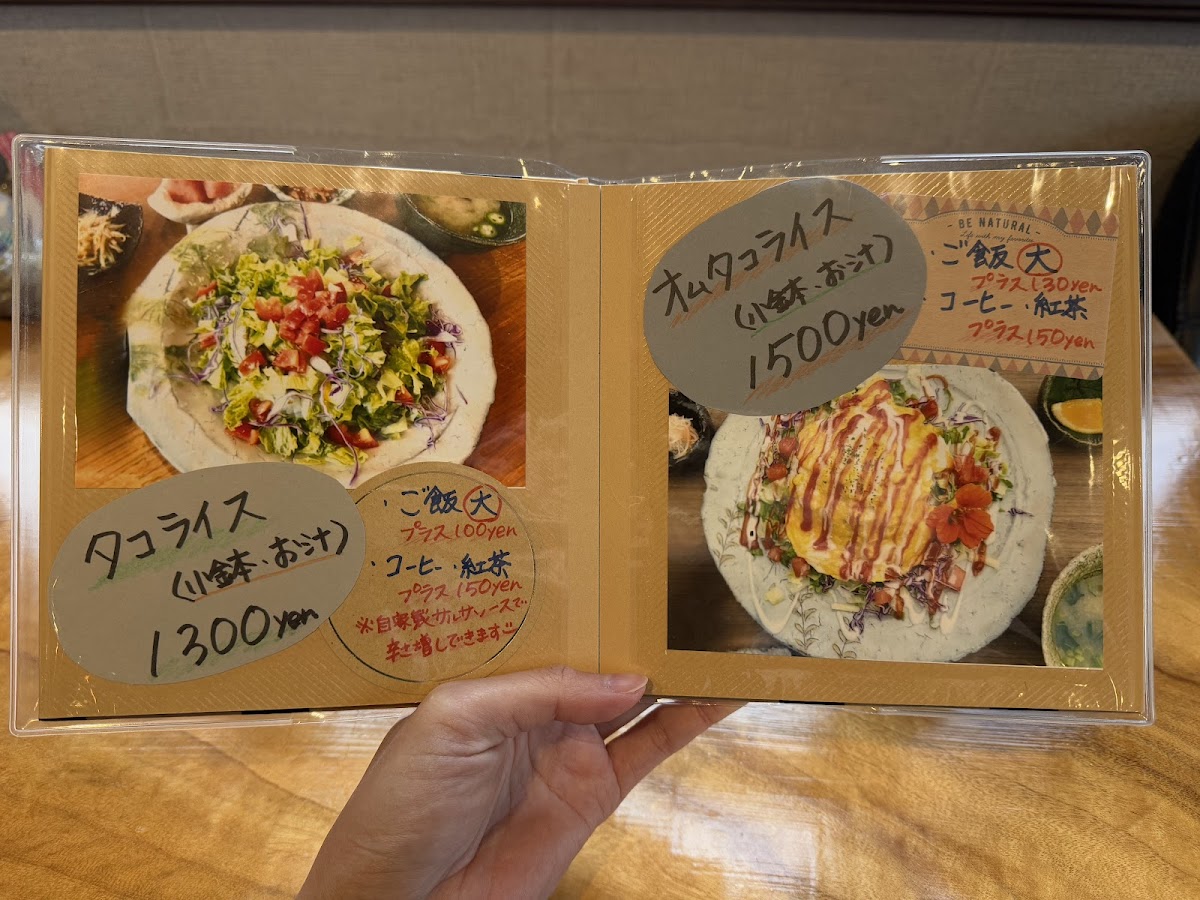 タコライス
(小鉢・お汁)
1300yen
・ご飯 大
プラス100yen
・コーヒー・紅茶
プラス150yen
※自家製サルサソースで
辛さ増しできます
オムタコライス
(小鉢・お汁)
1500yen
- BE NATURAL -
Life with my favorites
・ご飯 大
プラス130yen
・コーヒー・紅茶
プラス150yen